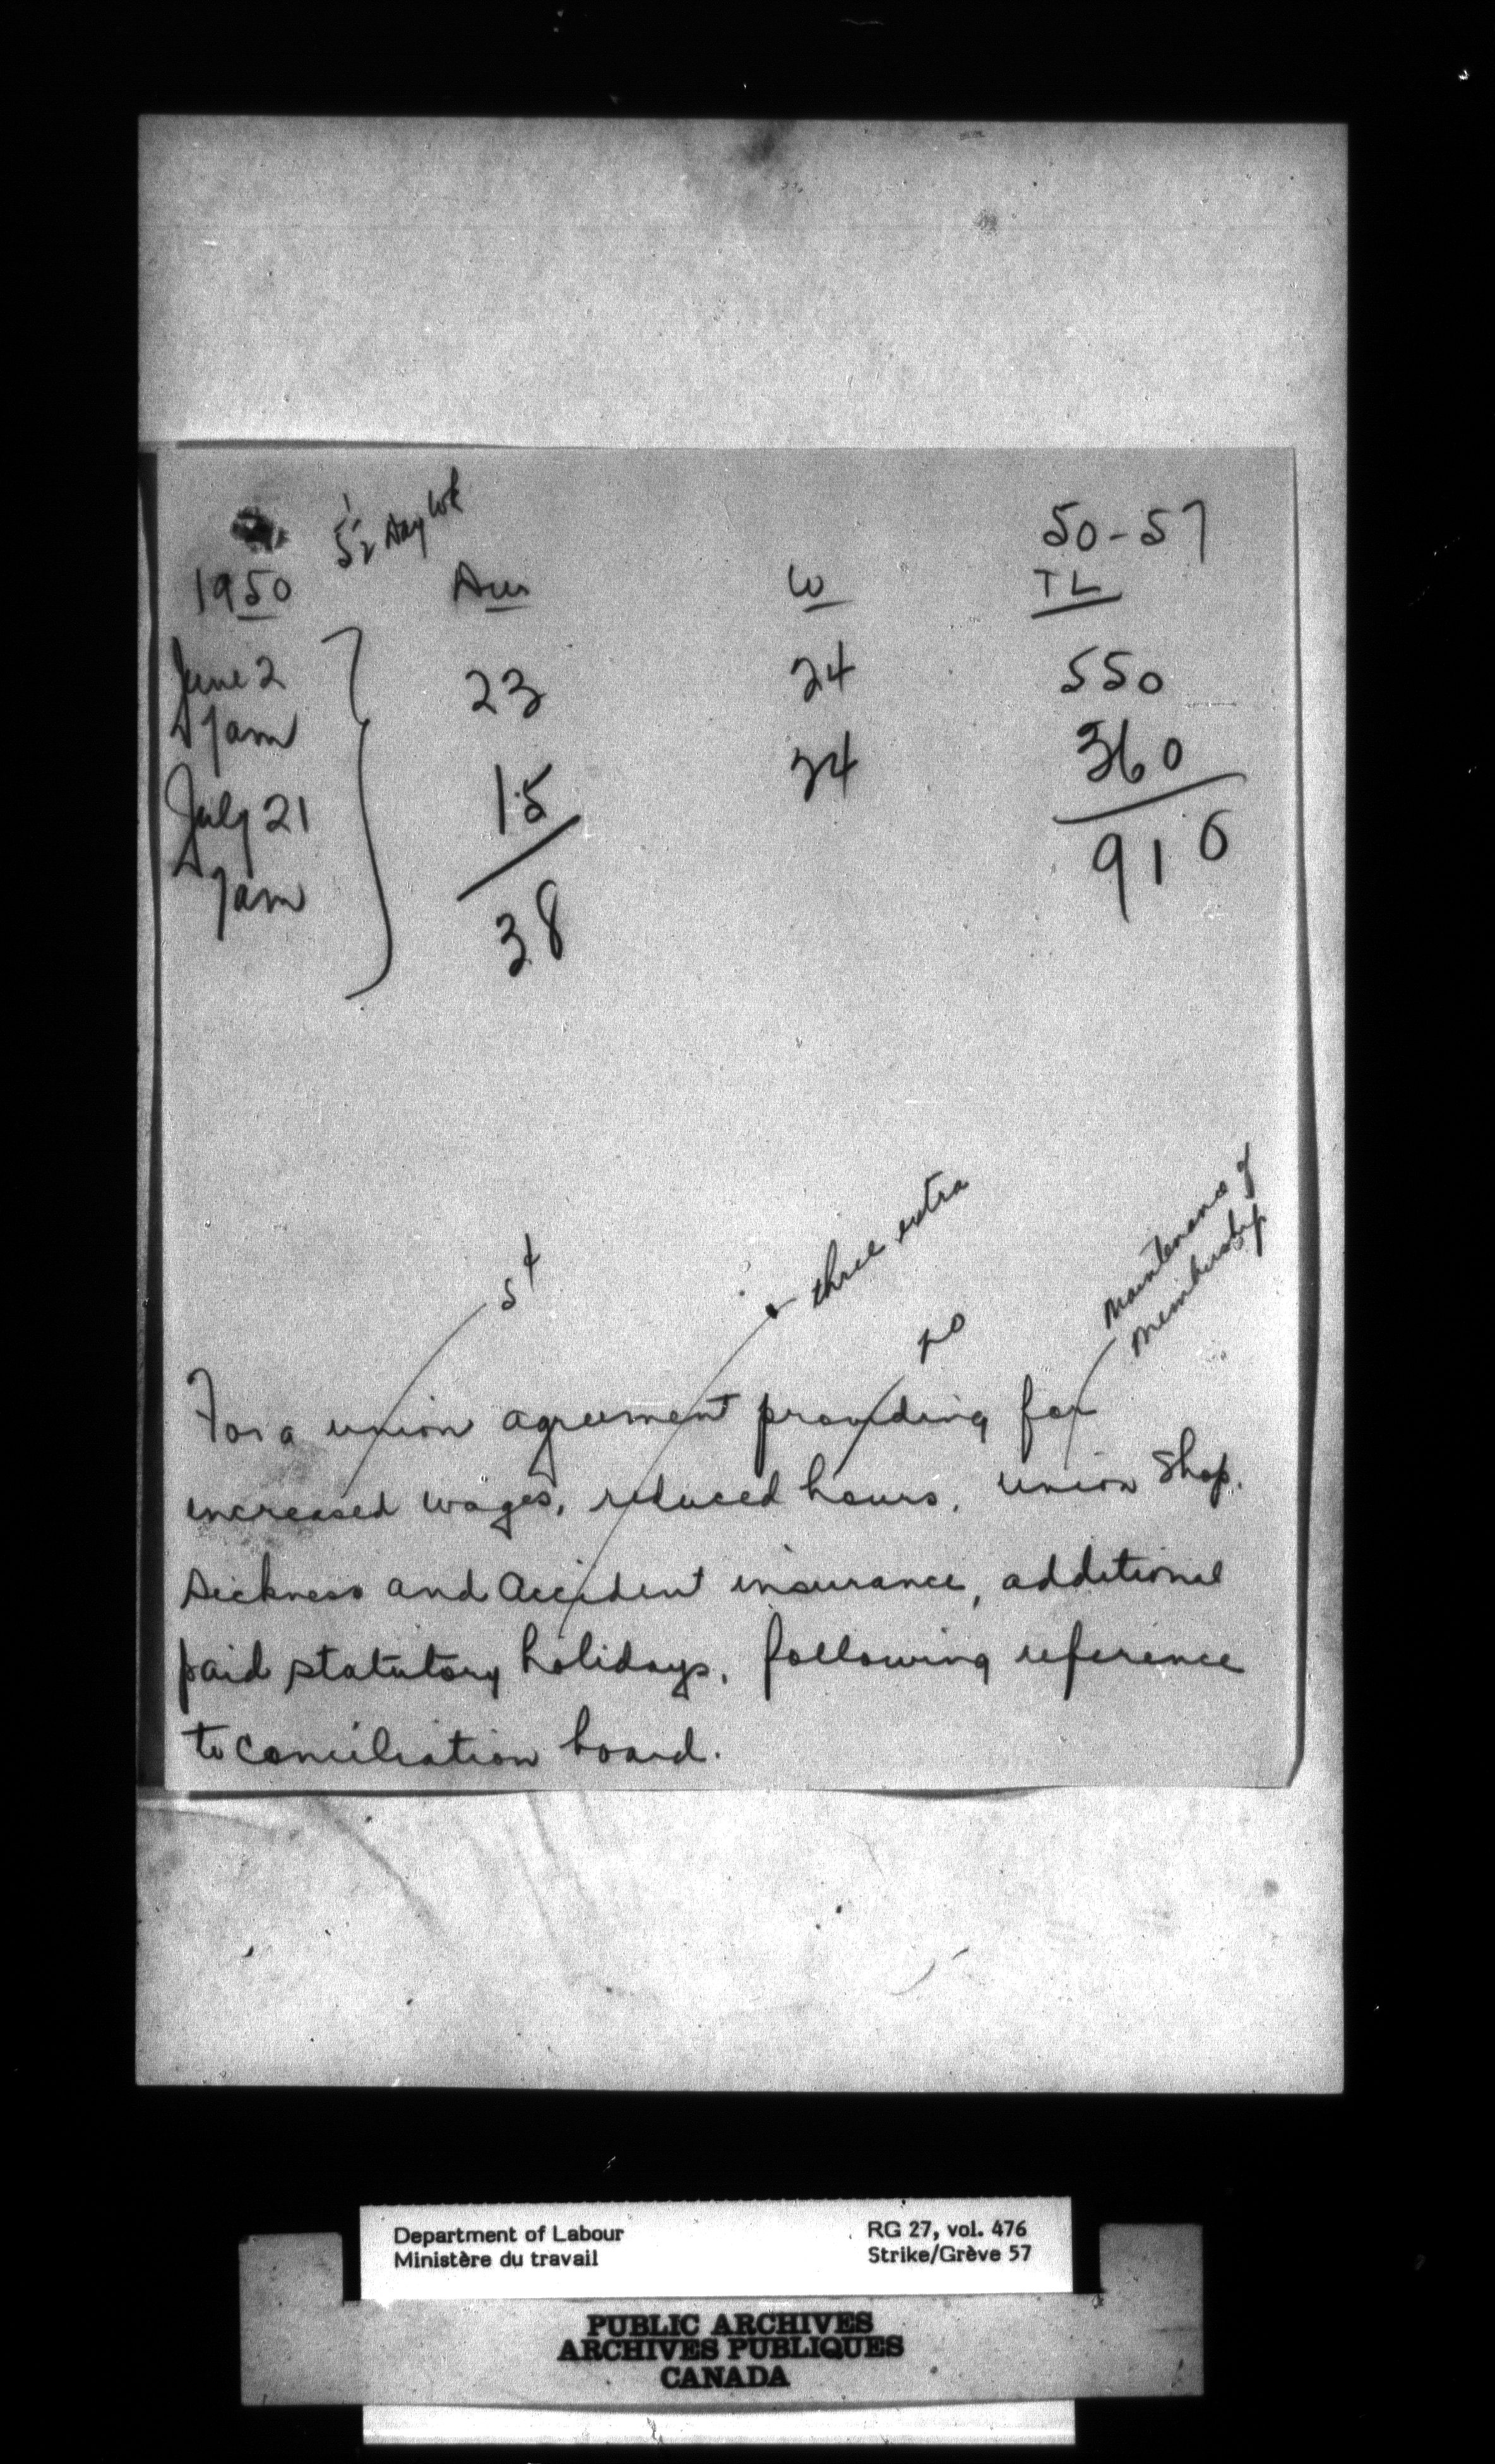 5 1/2 day wk
50-57
1950 Dur W TL
June 2 23 24 550
7 am
July 21 15 24 360
7 am
38 910
5¢
three extra
no
Maintenance of
Membership
For a union agreement providing for
increased wages, reduced hours, union shop.
sickness and accident insurance, additional
paid statutory holidays, following reference
to conciliation board.
Department of Labour
Ministère du travail
RG 27, vol. 476
Strike/Grève 57
PUBLIC ARCHIVES
ARCHIVES PUBLIQUES
CANADA